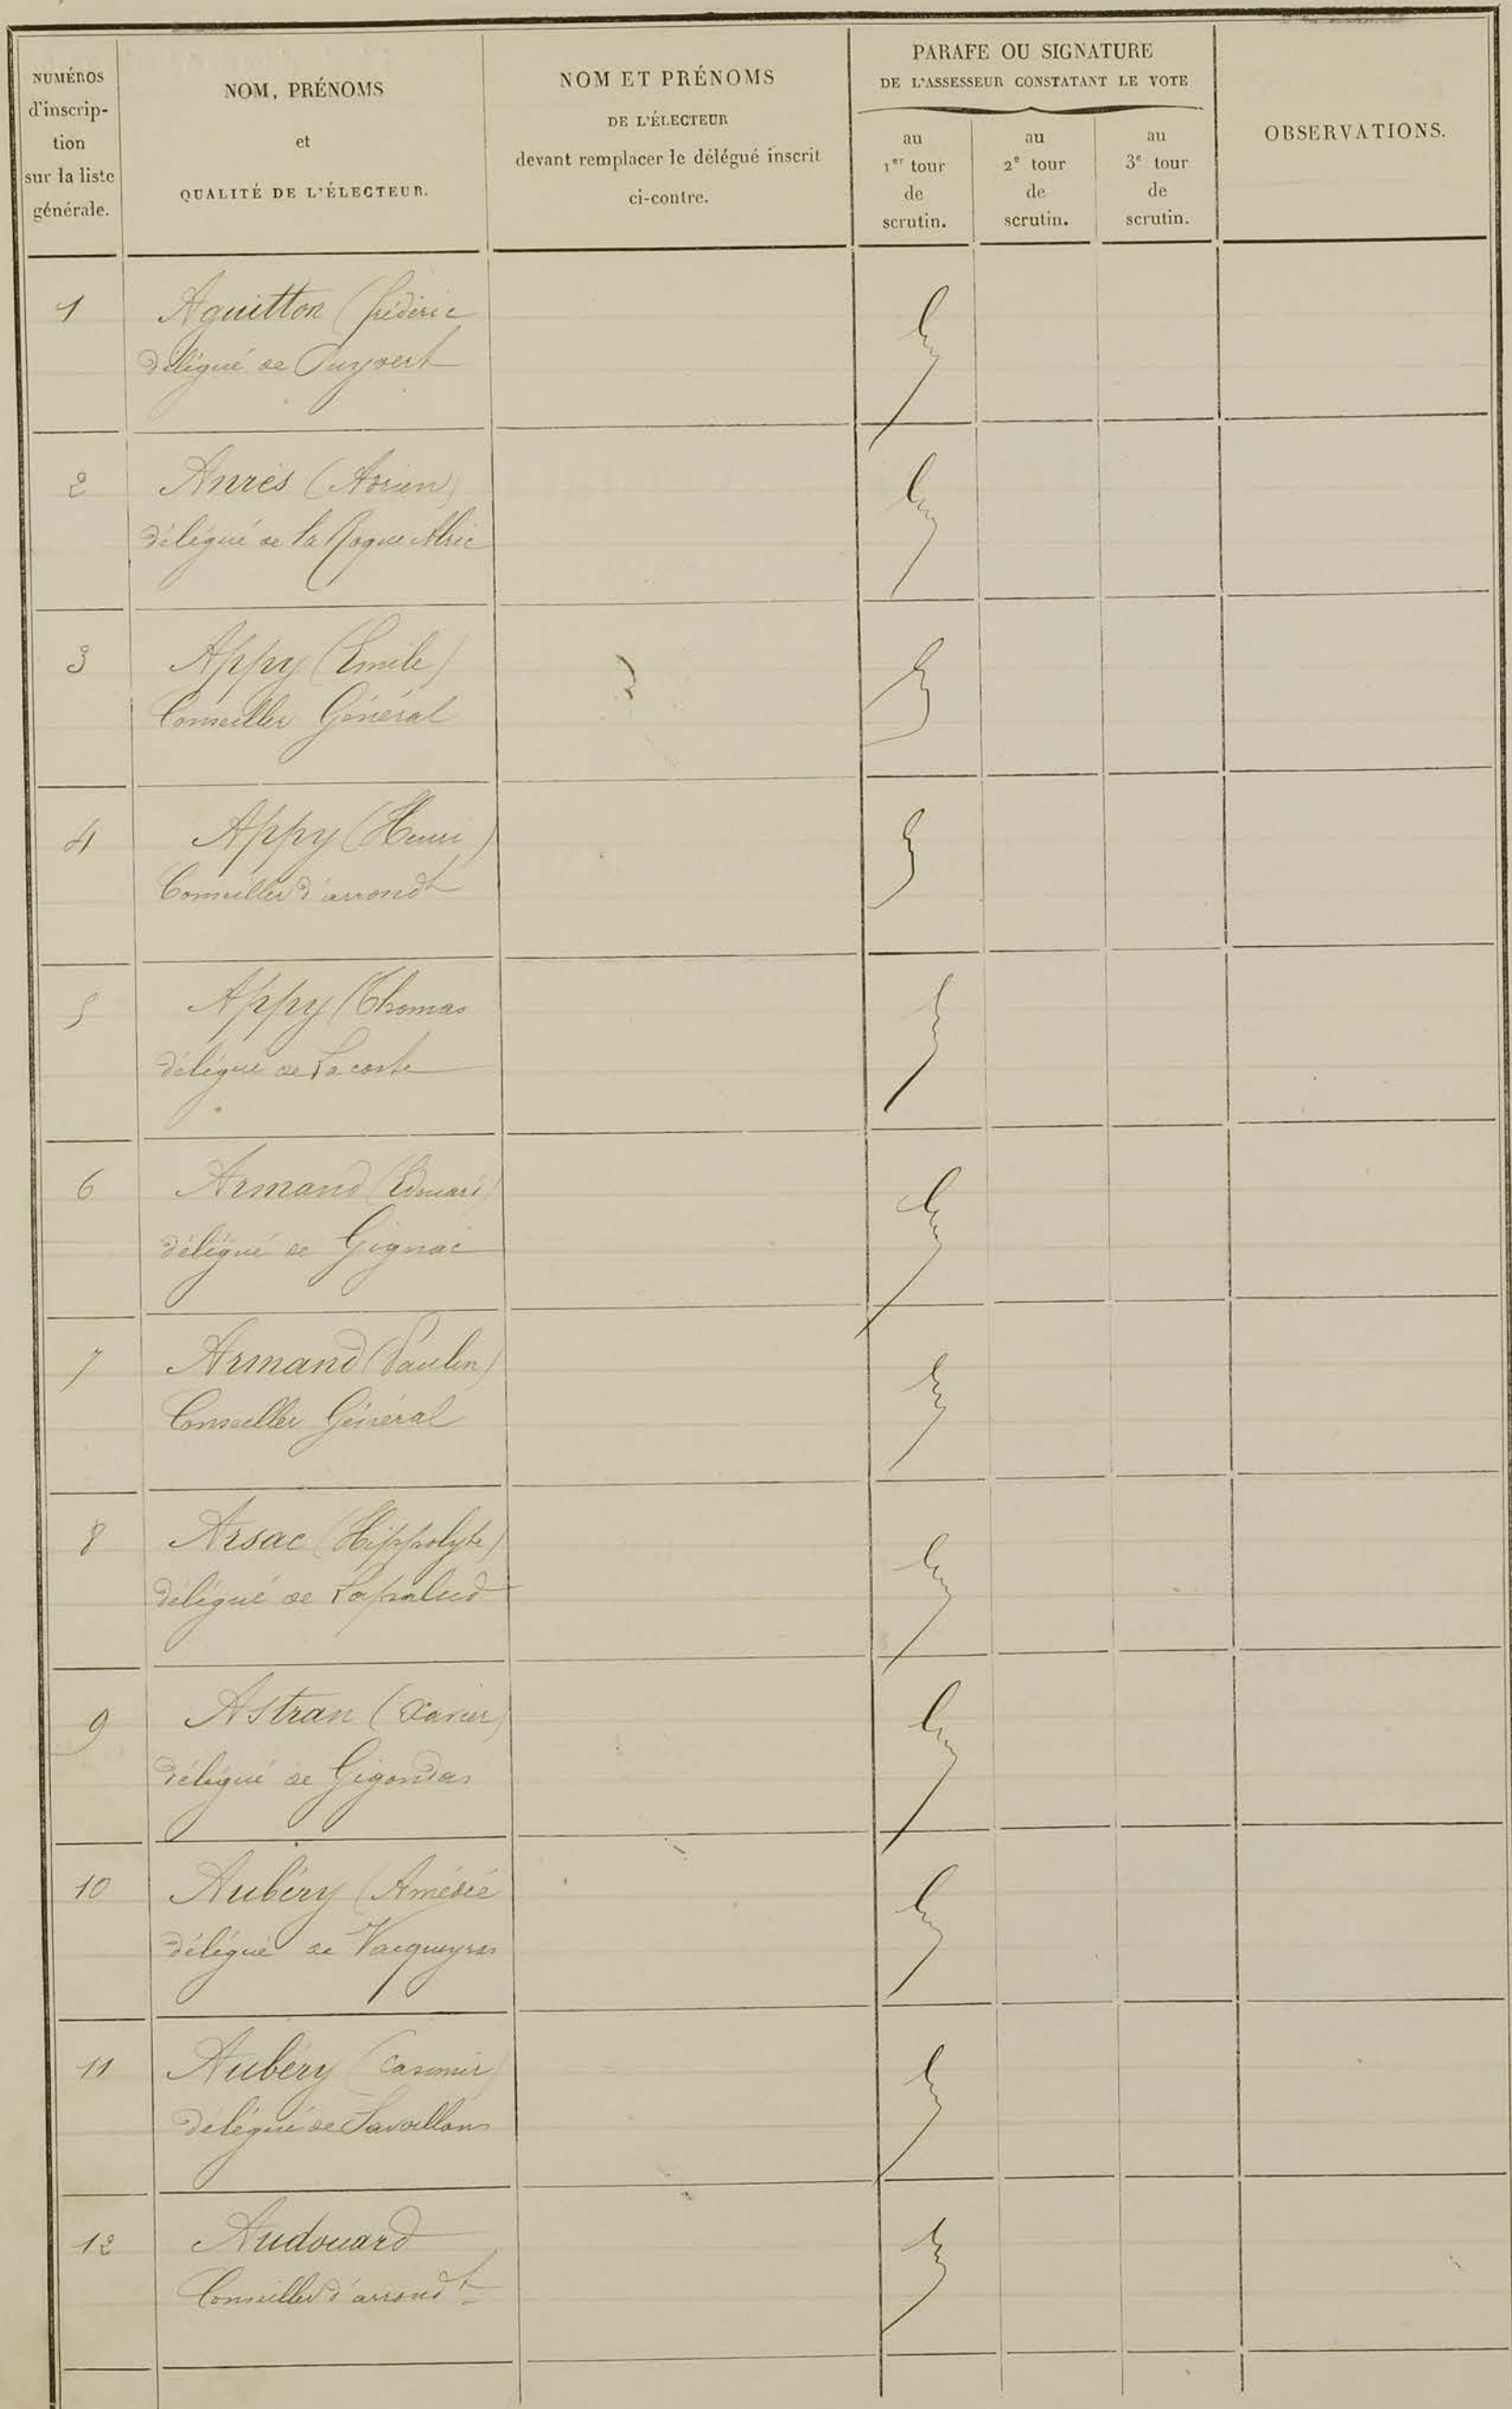 NUMÉROS
d'inscrip-
tion
sur la liste
générale.
NOM, PRÉNOMS
et
QUALITÉ DE L'ÉLECTEUR.
NOM ET PRÉNOMS
DE L'ÉLECTEUR
devant remplacer le délégué inscrit
ci-contre.
PARAFE OU SIGNATURE
DE L'ASSESSEUR CONSTATANT LE VOTE
au
1er tour
de
scrutin.
au
2e tour
de
scrutin.
au
3e tour
de
scrutin.
OBSERVATIONS.
1 Aguitton (frédéric
délégué de Puyvert
2 Anrès (Adrien)
délégué de la Roque Alric
3 Appy (Emile)
Conseiller Général
4 Appy (Henri)
Conseiller d'arrondt
5 Appy (Thomas
délégué de Lacoste
6 Armand (Edouard)
délégué de Gignac
7 Armand (Paulin)
Conseiller Général
8 Arsac (Hippolyte)
délégué de Lapalud
9 Astran (Xavier)
délégué de Gigondas
10 Aubéry (Amédée
délégué de Vacqueyras
11 Aubéry (Casimir)
délégué de Savoillans
12 Audouard
Conseiller d'arrondt